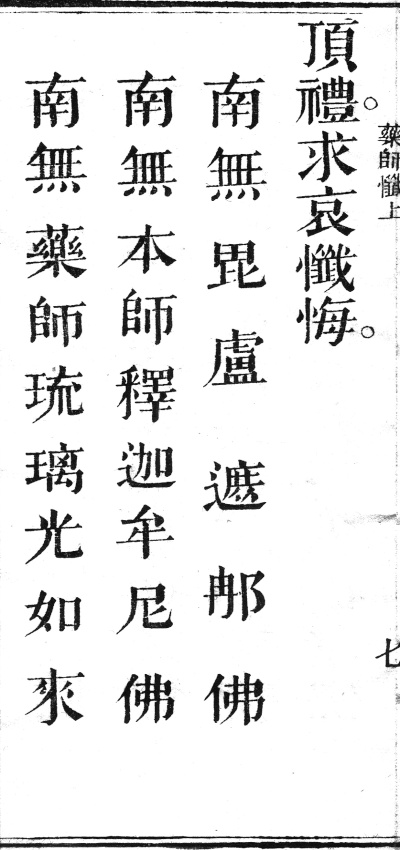 藥師懺上
七
頂禮。求哀懺悔。
南無毘盧遮那佛
南無本師釋迦牟尼佛
南無藥師琉璃光如來